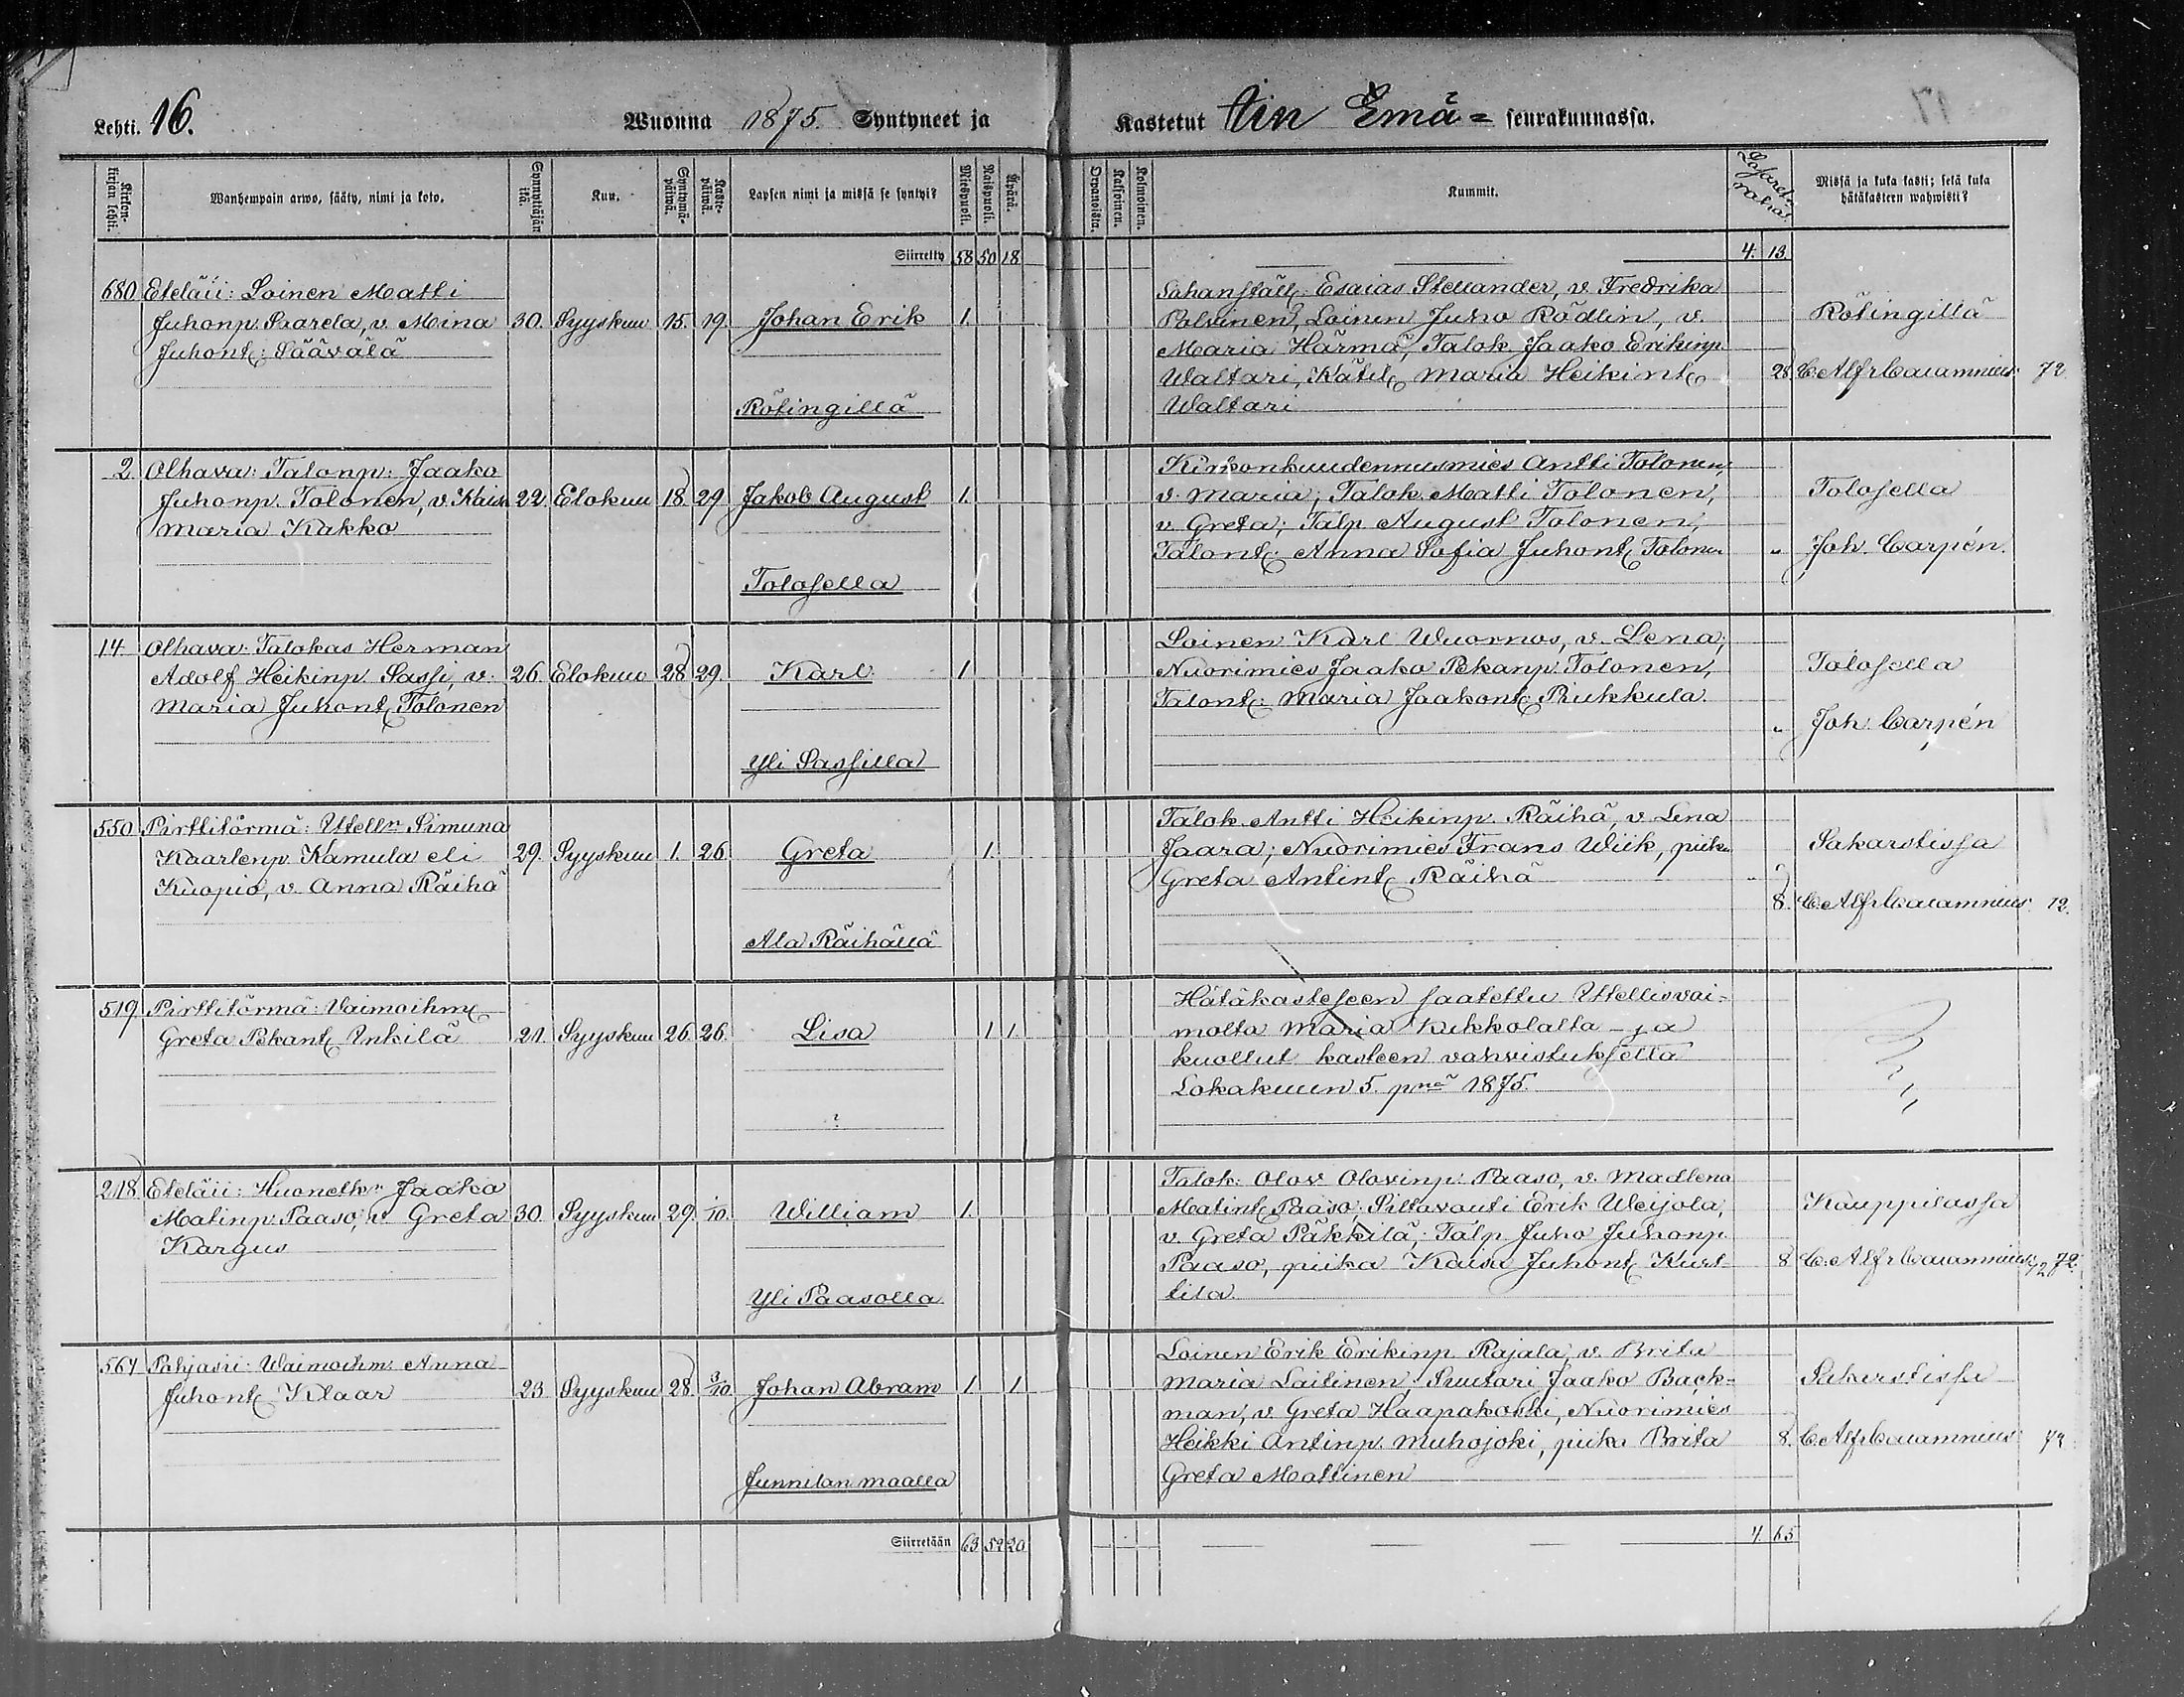 Lehti. 16. Wuonna 1875. Syntyneet ja Kastetut Iin Emä= seurakunnassa.
Kirkonkirjan lehti. Wanhempain arwo, sääty, nimi ja koto. Synnyttäjän ikä. Kuu. Syntymäpäivä. Kastepäivä. Lapsen nimi ja missä se syntyi? Miespuoli. Naispuoli. Äpärä. Orpanoista. Kaksoinen. Kolmoinen. Kummit. Missä ja kuka kasti; sekä kuka hätäkasteen wahwisti?
Siirretty 58 50 18 4. 13.
680 Eteläii: Loinen Matti
Juhonp. Paarela, v. Mina 30. Syyskuu 15. 19. Johan Erik 1.
Juhont: Säävälä
Rötingillä
Sahanställ: Esaias Stellander, v. Fredrika
Polvinen, Loinen Juho Rödlin, v.
Maria Härmä, Talok. Jaako Erikinp
Waltari, Kätil. Maria Heikint.
Waltari
28.
Rötingillä
C. Alfr Cajamnius 72
2. Olhava: Talonp: Jaako
Juhonp. Tolonen, v. Kaisa 22. Elokuu 18. 29 Jakob August 1.
Maria Kakko
Tolosella
Kirkonkuudennusmies Antti Tolonen,
v. Maria; Talok. Matti Tolonen,
v. Greta; Talp August Tolonen,
Talont. Anna Sofia Juhont. Tolonen
Tolosella
Joh. Carpén.
14. Olhava: Talokas Herman
Adolf Heikinp. Sassi, v. 26. Elokuu 28 29. Karl 1
Maria Juhont. Tolonen
Yli Sassilla
Loinen Karl Wuornos, v. Lena;
Nuorimies Jaako Pekanp. Tolonen,
Talont. Maria Jaakont. Riukkula.
Tolosella
Joh. Carpén
550 Pirttitörmä: Itselln Simuna
Kaarlenp. Kamula eli 29. Syyskuu 1. 26 Greta 1.
Kuopio, v. Anna Räihä
Ala Räihällä
Talok Antti Heikinp. Räihä, v. Lena
Jaara; Nuorimies Frans Wiik, piika
Greta Antint. Räihä
8.
Sakarstissa
C. Alfr Cajamnius 72.
519. Pirttitörmä: Vaimoihm.
Greta Pekant. Inkilä 21. Syyskuu 26. 26. Lisa 1 1.
?
Hätäkasteseen saatettu Itsellisvai=
molta Maria Kukkolalta – ja
kuollut kasteen vahvistuksetta
Lokakuun 5. pnä 1875.
218. Eteläii: Huonelkn Jaako
Matinp. Paaso, v. Greta 30. Syyskuu 29. 1/10. William 1.
Kargus
Yli Paasolla
Talok: Olov Olovinp: Paaso, v. Madlena
Matint. Paaso; Siltavouti Erik Weijola,
v. Greta Päkkilä; Talp Juho Juhonp.
Paaso, piika Kaisa Juhont. Kurt-
tila.
8
Kauppilassa
C. Alfr Cajamnius 72 72.
561 Pohjasii: Waimoihm: Anna
Juhont. Klaar 23 Syyskuu 28. 3/10 Johan Abram 1 1
Junnilan maalla
Loinen Erik Erikinp. Rajala, v. Brita
Maria Laitinen. Suutari Jaako Back=
man, v. Greta Haapakoski, Nuorimies
Heikki Antinp. Muhojoki, piika Brita
Greta Mattinen
8.
Sakarstissa
C. Alfr Cajamnius 72
Siirretään 63 52 20 4. 65